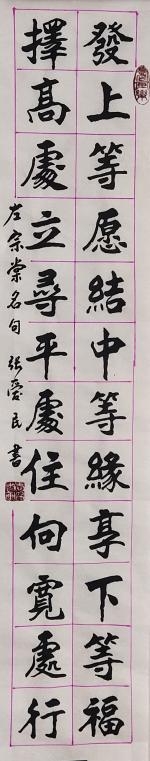 發上等愿結中等緣享下等福
擇高處立尋平處住向寬處行
左宗棠名句 張愛民書